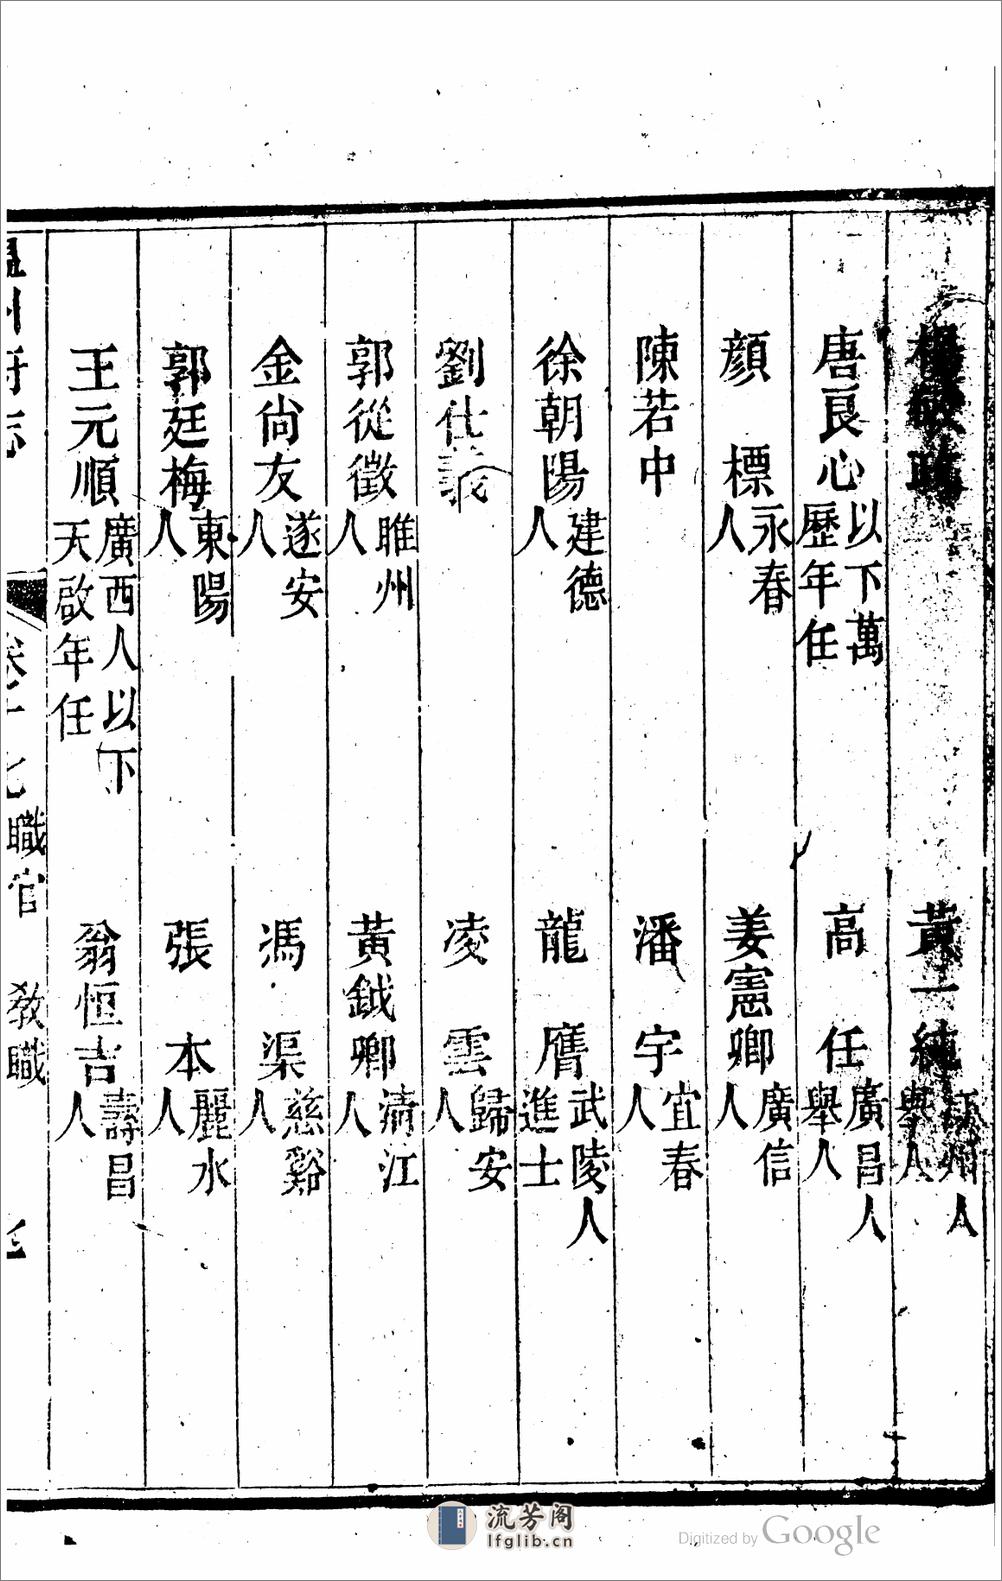 黃一純 人 舉人
唐良心 以下萬歷年任 高任 廣昌人舉人
顏標 永春人 姜憲卿 廣信人
陳若中 潘宇 宜春人
徐朝陽 建德人 龍膺 武陵人進士
劉仕義 凌雲 歸安人
郭從徵 睢州人 黃鉞卿 清江人
金尚友 遂安人 馮渠 慈谿人
郭廷梅 東陽人 張本 麗水人
王元順 廣西人以下天啟年任 翁恒吉 壽昌人
州府志 職官 教職
流芳阁
lfglib.cn
Digitized by Google